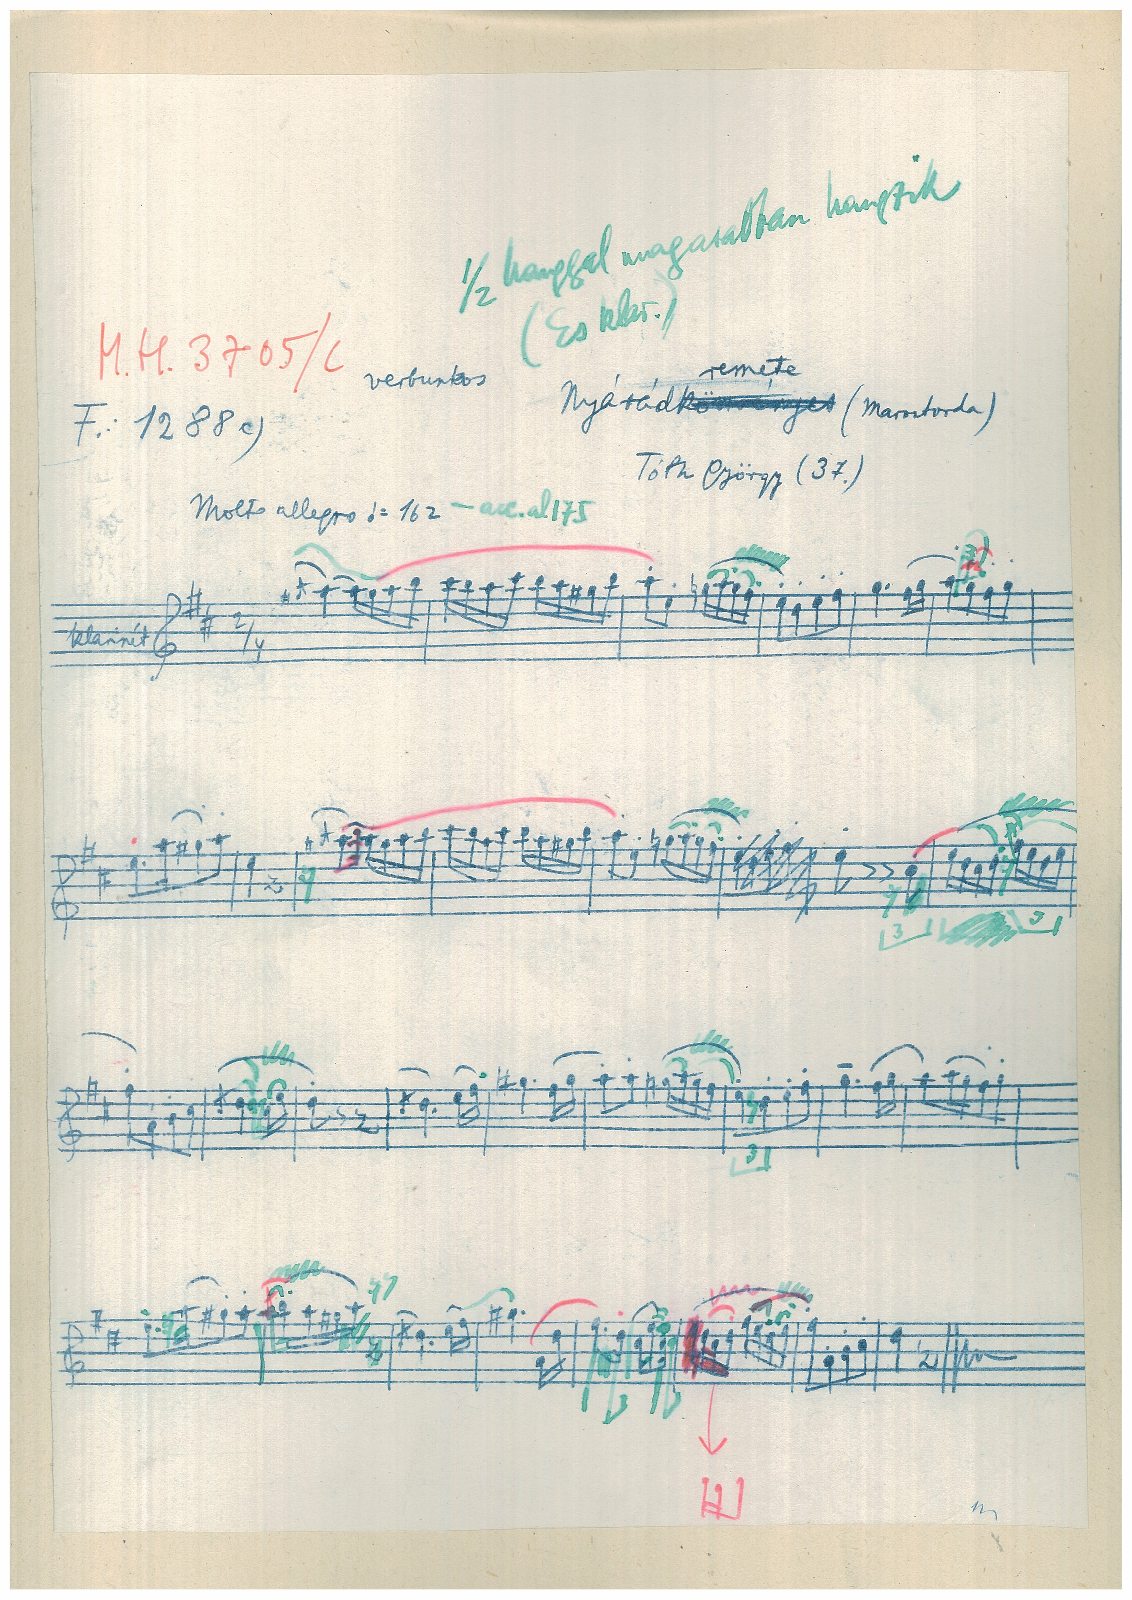 1/2 hanggal magasabban hangzik
(Es klar.)
M.H. 3705/c
verbunkos
remete
Nyárádköszvényes (Marostorda)
F.: 1288 c)
Tóth György (37.)
Molto allegro ♩= 162 — acc. al 175
klarinét
2/4
3
3
3